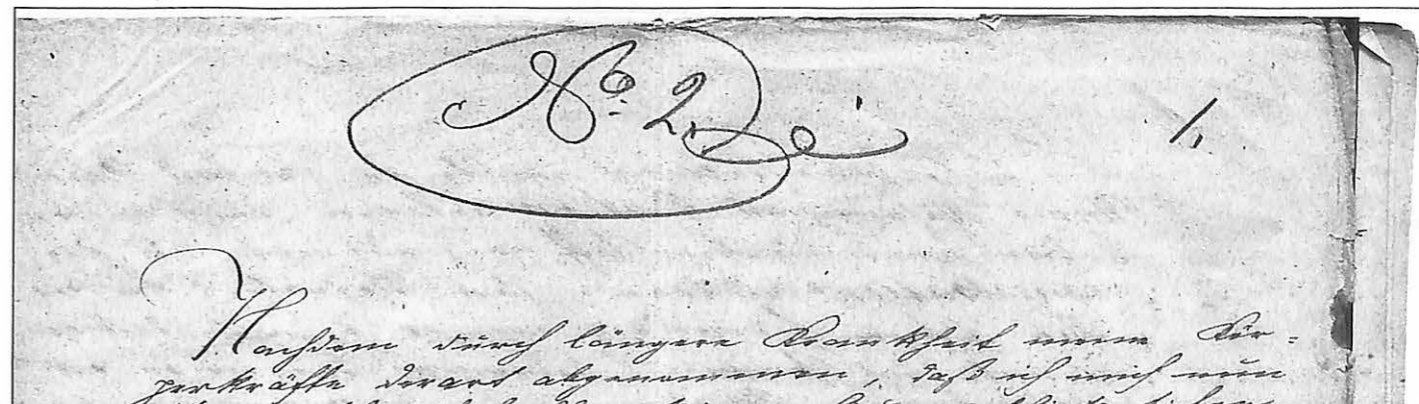 No. 2
1,
Nachdem durch längere Krankheit meine Kör=
perkräfte derart abgenommen, daß ich mich nun